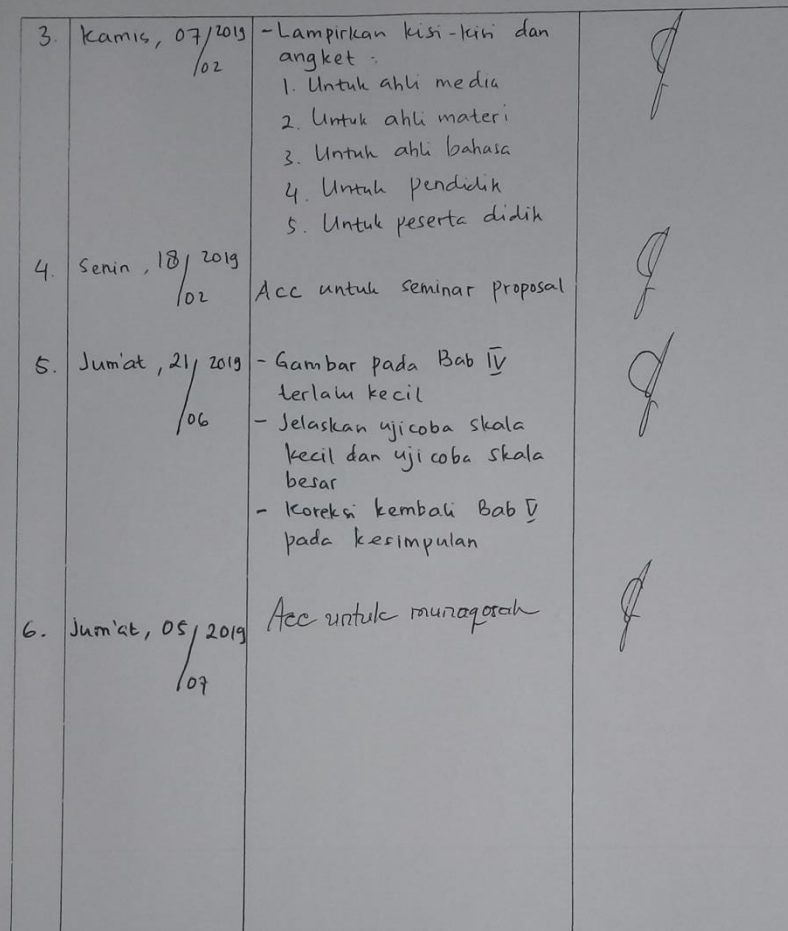 3. Kamis, 07/02 2019 - Lampirkan kisi-kisi dan
angket :
1. Untuk ahli media
2. Untuk ahli materi
3. Untuk ahli bahasa
4. Untuk pendidik
5. Untuk peserta didik
4. Senin, 18/02 2019 Acc untuk seminar proposal
5. Jum'at, 21/06 2019 - Gambar pada Bab IV
terlalu kecil
- Jelaskan ujicoba skala
kecil dan uji coba skala
besar
- Koreksi kembali Bab V
pada kesimpulan
6. Jum'at, 05/07 2019 Acc untuk munaqosah